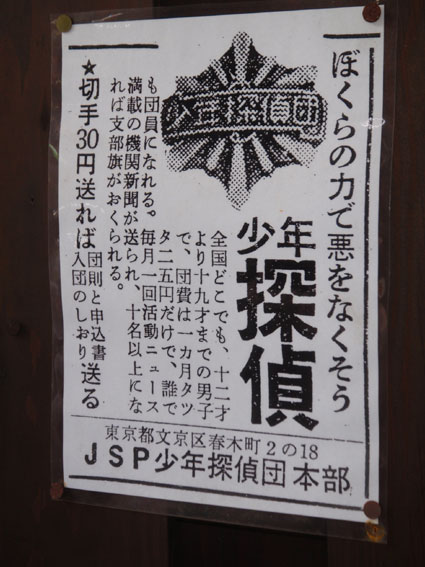 ぼくらの力で悪をなくそう
少年探偵団
少年
探偵
全国どこでも、十二才
より十九才までの男子
で、団費は一カ月タッ
タ二五円だけで、誰で
も団員になれる。毎月一回活動ニュース
満載の機関新聞が送られ、十名以上にな
れば支部旗がおくられる。
★切手30円送れば団則と申込書入団のしおり送る
東京都文京区春木町2の18
JSP少年探偵団本部